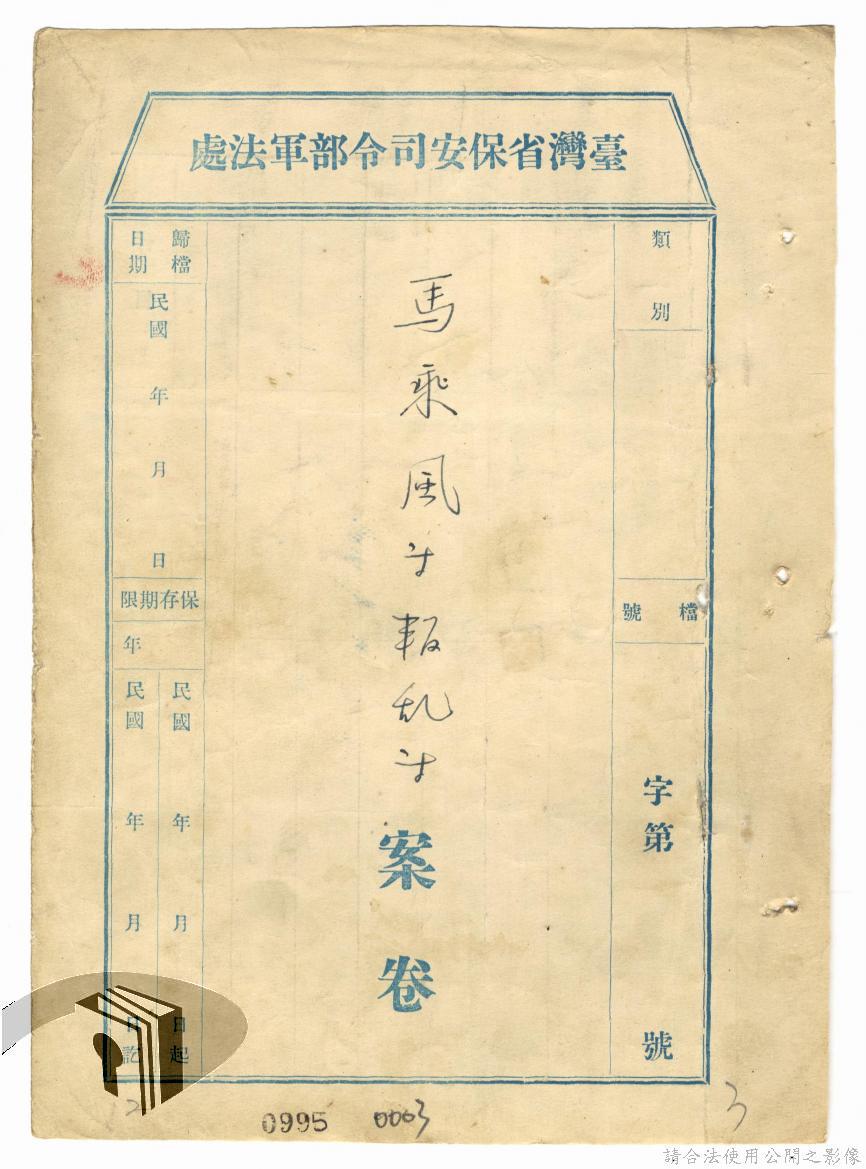 臺灣省保安司令部軍法處
類別
檔號
字第 號
馬乘风等叛乱等案卷
歸檔日期
民國 年 月 日
保存期限
年
民國 年 月 日起
民國 年 月 日訖
0995 0003
3
請合法使用公開之影像